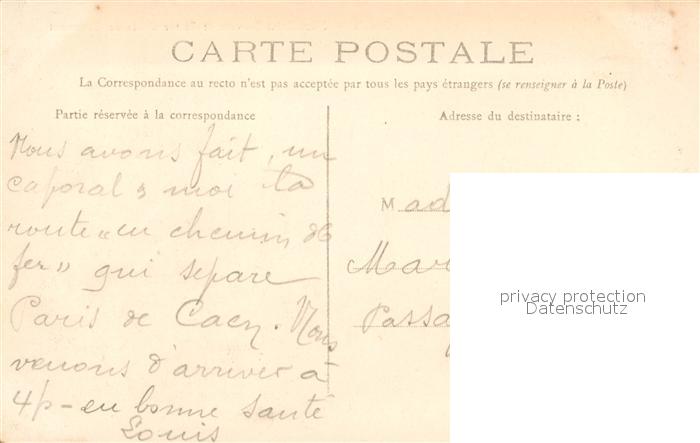 CARTE POSTALE
La Correspondance au recto n'est pas acceptée par tous les pays étrangers (se renseigner à la Poste)
Partie réservée à la correspondance
Nous avons fait, un
caporal & moi la
route « en chemin de
fer » qui separe
Paris de Caen. Nous
venons d'arriver à
4h - en bonne santé
Louis
Adresse du destinataire :
Mad
Mar
Passa
privacy protection
Datenschutz